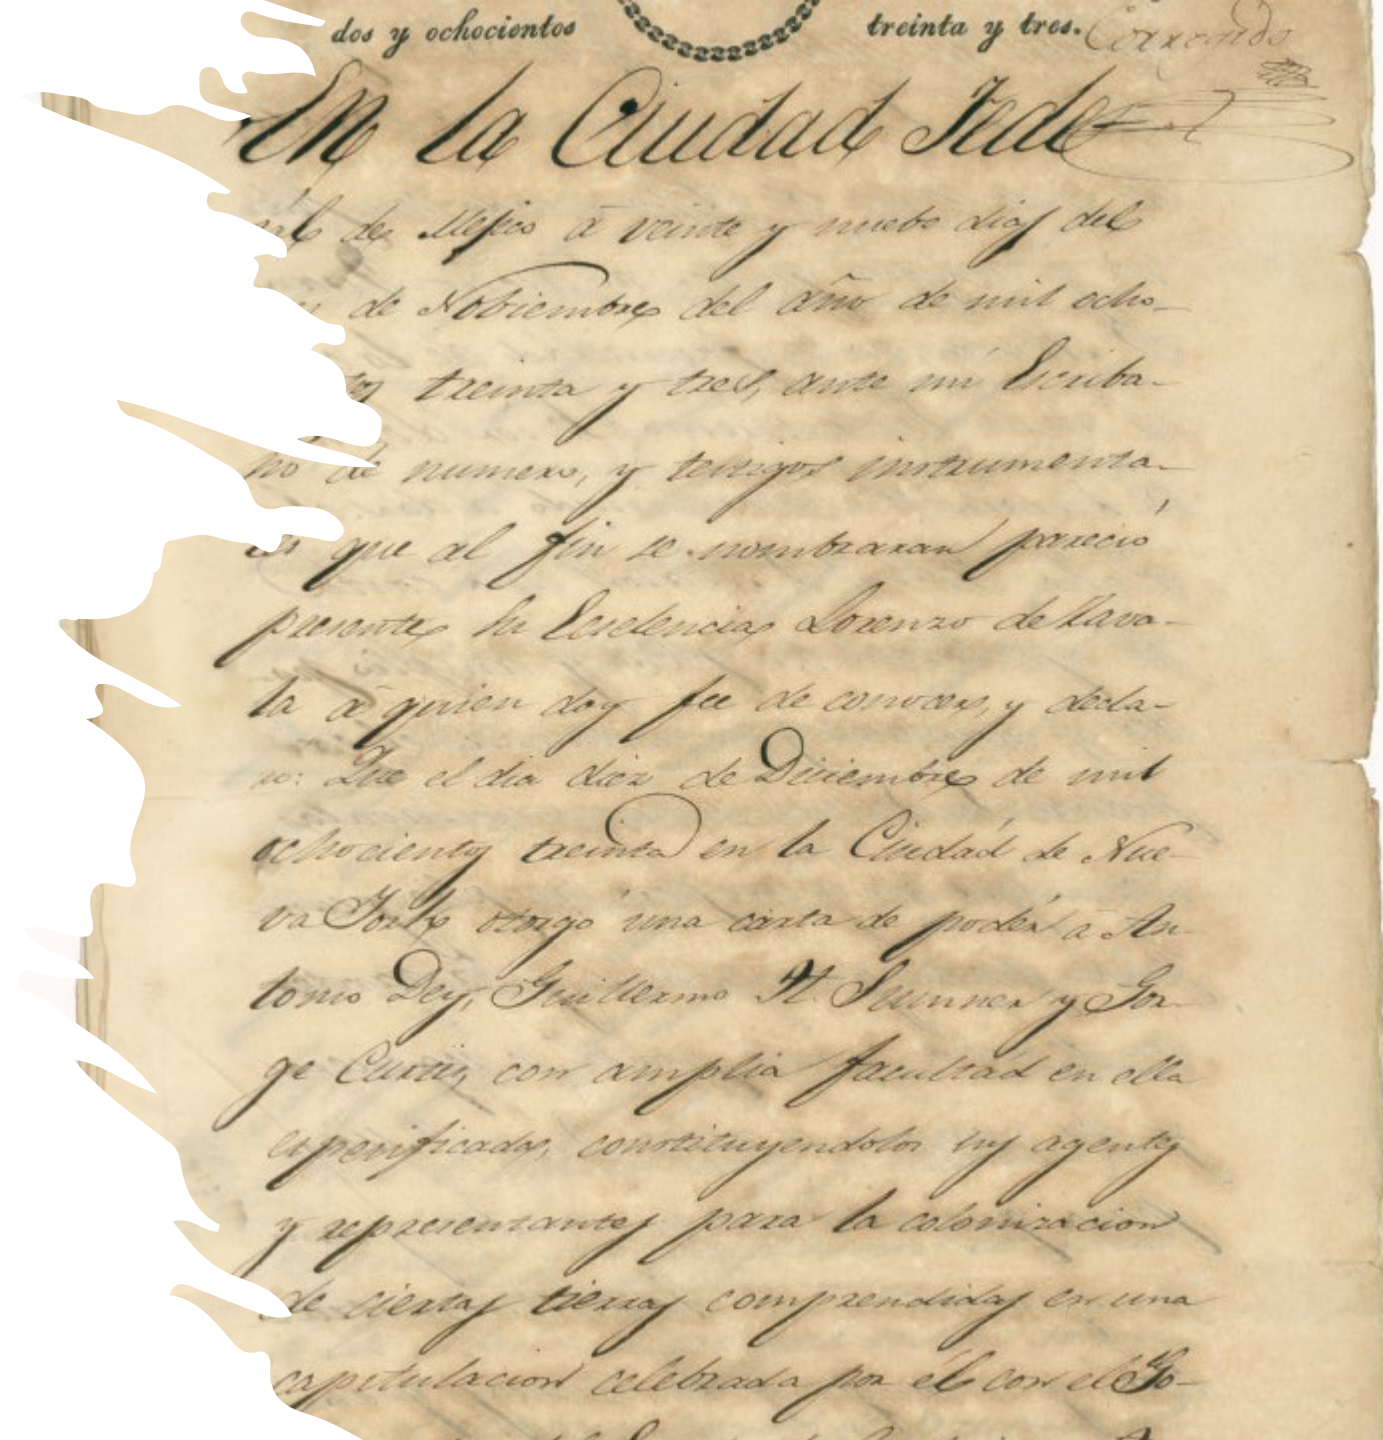 dos y ochocientos treinta y tres. Corregido
En la Ciudad Fede
ral de Mejico á veinte y nuebe dias del
de Nobiembre del año de mil ocho-
tos treinta y tres, ante mi Escriba-
no de numero, y testigos instrumenta-
les que al fin se nombraran pareció
presente Su Escelencia Lorenzo de Zava-
la á quien doy fee de conocer, y decla-
ro: Que el dia diez de Diciembre de mil
ochocientos treinta en la Ciudád de Nue-
va York otorgó una carta de podér á An-
tonio Dey, Guillermo H. Sumner y Jor-
ge Curtis, con amplia facultád en ella
especificadas, constituyendolos sus agentes
y representantes para la colonizacion
de ciertas tierras comprendidas en una
capitulacion celebrada por él con el Go-